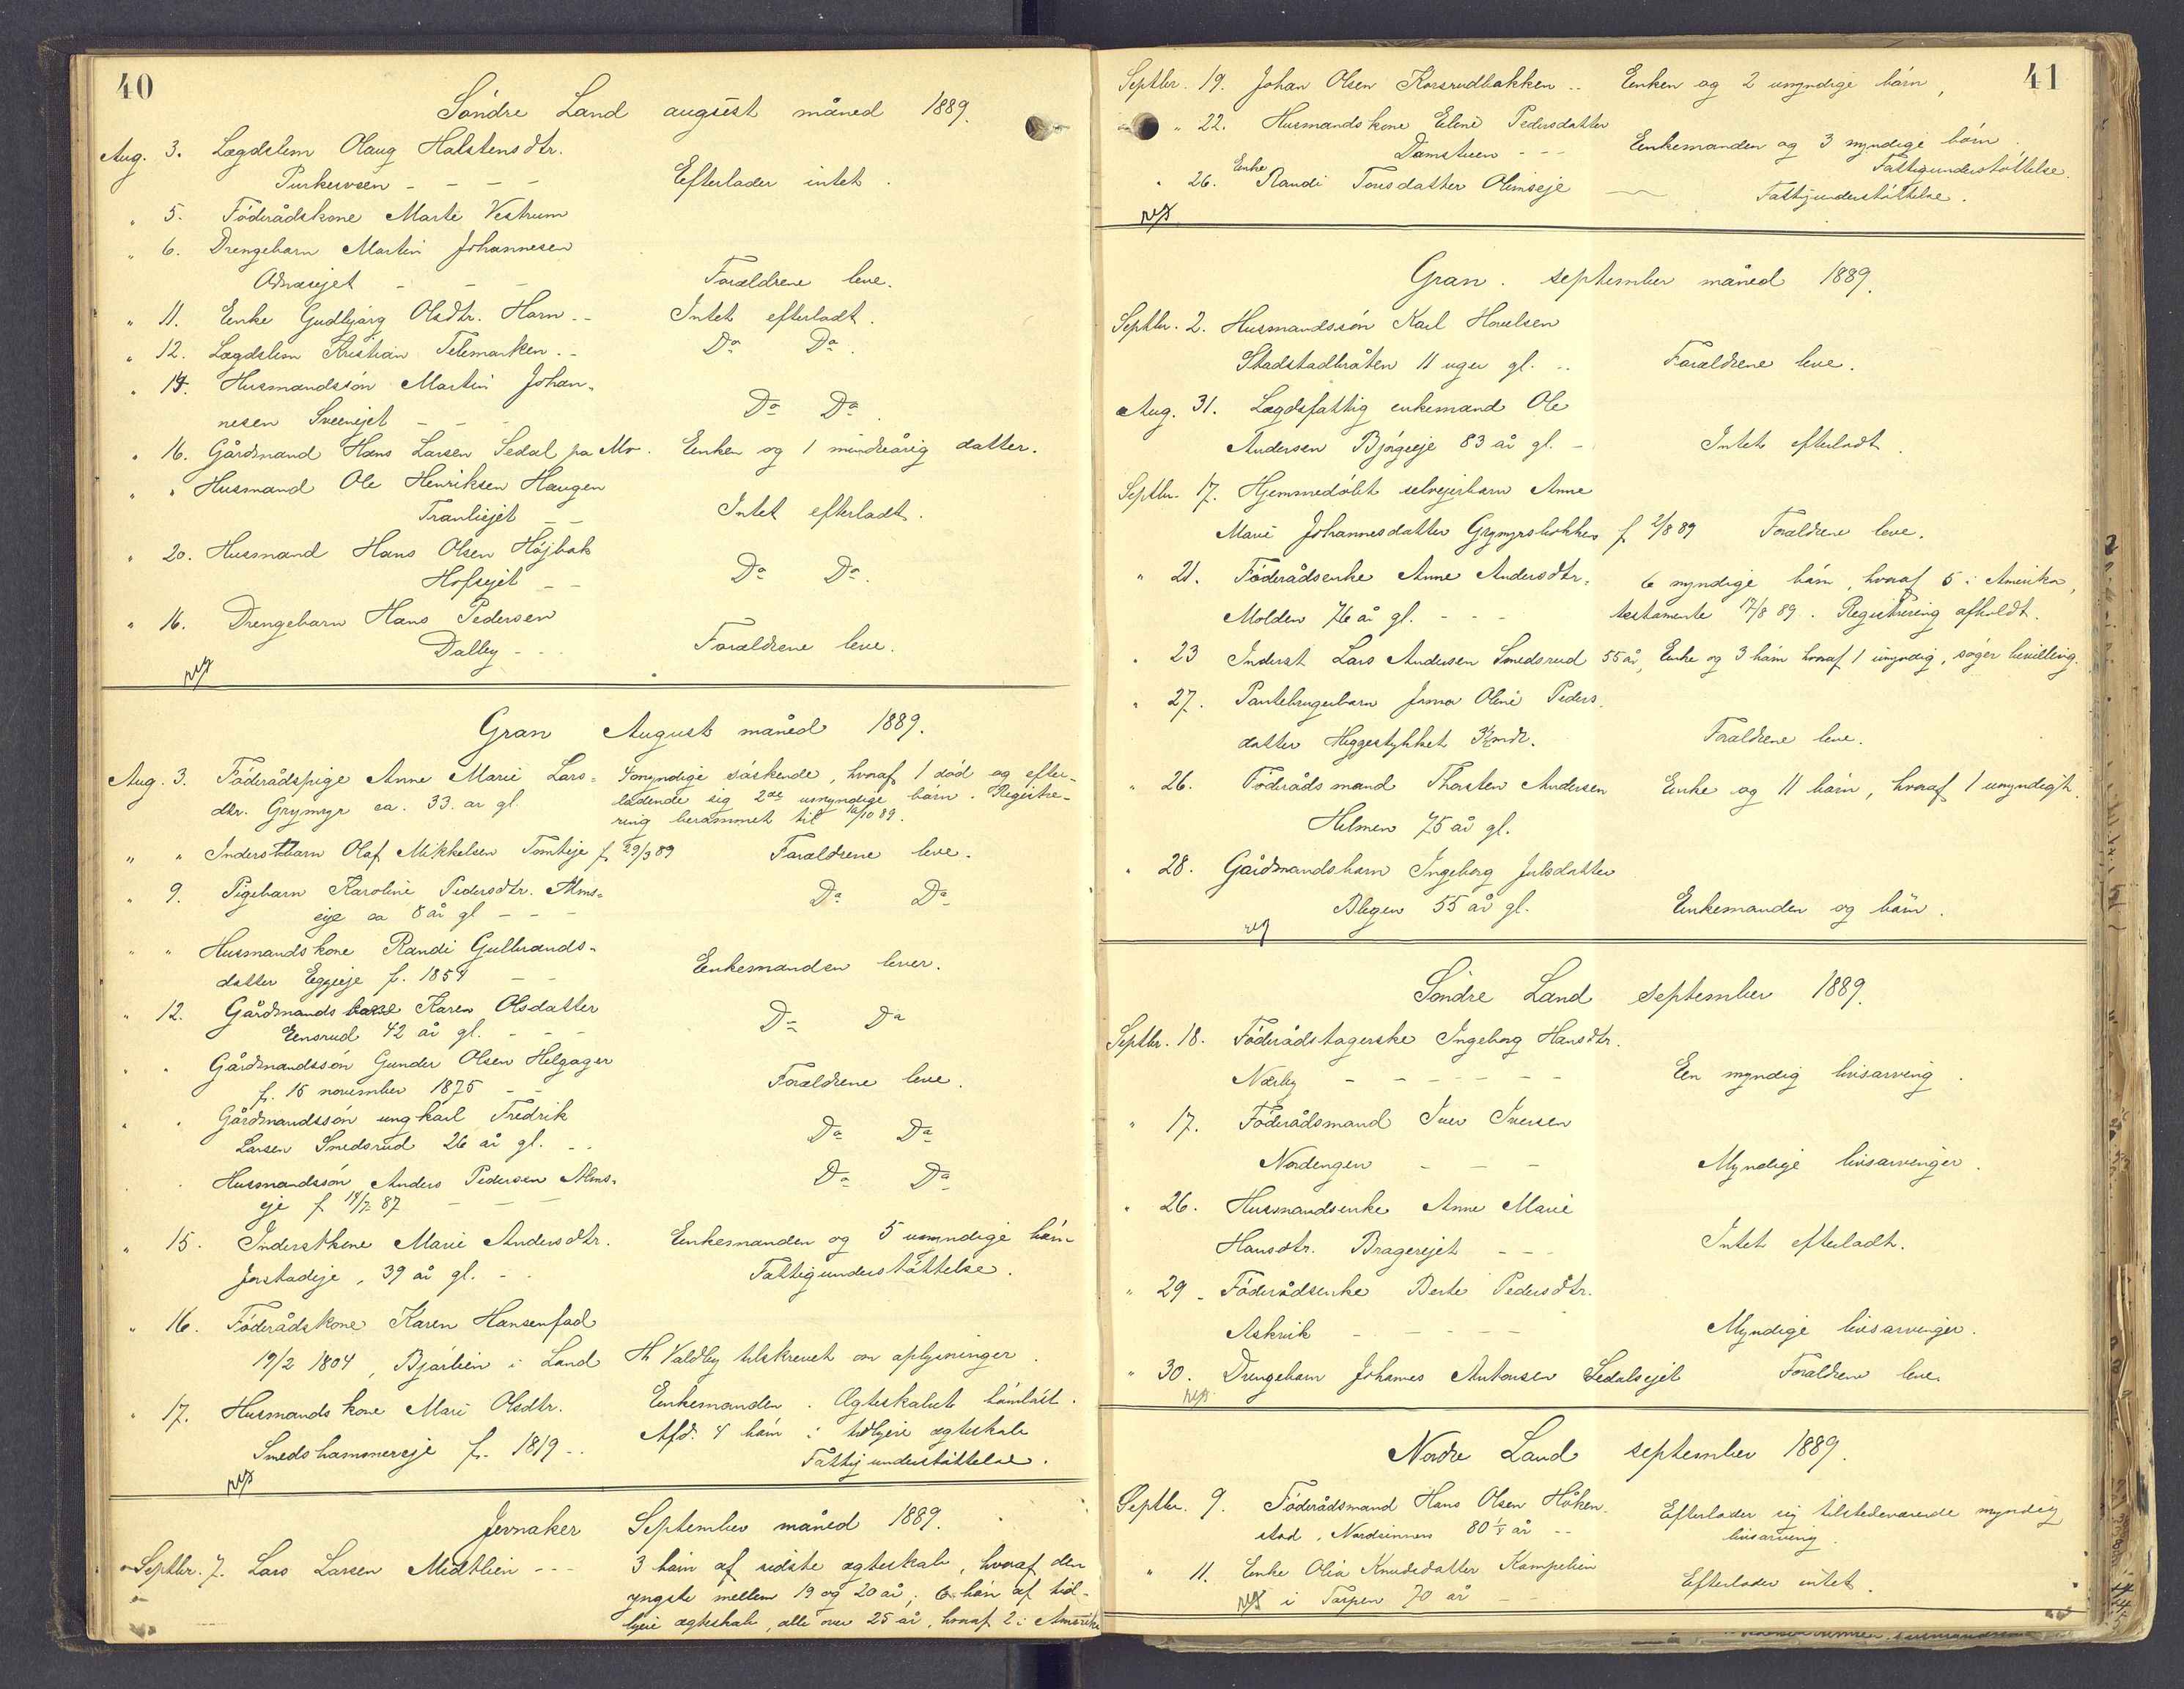 40
Söndre Land august måned 1889.
Aug. 3. Lægdslem Olaug Halstensdtr.
- - - - Efterlader intet.
" 5. Föderådskone Marte Vestrum
" 6. Drengebarn Martin Johannesen
- - - Forældrene leve.
" 11. Enke Gudbjörg Olsdtr. Horn - - Intet efterladt.
" 12. Lægdslem Kristian Telemarken - - Do Do.
" 14. Husmandssön Martin Johan-
nesen - - - Do Do.
" 16. Gårdmand Hans Larsen Sedal på Mo. Enken og 1 mindreårig datter.
" " Husmand Ole Henriksen Haugen
Tranliejet - - Intet efterladt.
" 20. Husmand Hans Olsen Höjbak
Hofsejet - - Do Do.
" 16. Drengebarn Hans Pedersen
Dalby - - Forældrene leve.
reg
Gran August måned 1889.
Aug. 3. Föderådspige Anne Marie Lars-
dtr. Grymyr ca. 33. år gl.
4 myndige söskende, hvoraf 1 död og efter-
ladende sig 2de umyndige börn. Registre-
ring berammet til 16/10 89.
" " Inderstbarn Olaf Mikkelsen Tomteje f 29/3 89 Forældrene leve.
" 9. Pigebarn Karoline Pedersdtr. Alms-
eje ca 8 år gl - - - Do Do
" " Husmandskone Randi Gulbrands-
datter Eggeeje f. 1854 - - Enkemanden lever.
" 12. Gårdmands Karen Olsdatter
Eensrud 42 år gl. - - - Do Do
" " Gårdmandssön Gunder Olsen Helgager
f. 15 november 1875 - - Forældrene leve.
" " Gårdmandssön ungkarl Fredrik
Larsen Smedsrud 26 år gl. - - Do Do
" " Husmandssön Anders Pedersen Alms-
eje f 14/7 87 - - Do Do
" 15. Inderstkone Marie Andersdtr. Enkemanden og 5 umyndige börn
Jorstadeje, 39 år gl. - - Fattigunderstöttelse.
" 16. Föderådskone Karen Hansen fød
19/2 1804, Björlien i Land Th Valdby tilskrevet om oplysninger.
" 17. Husmandskone Mari Olsdtr. Enkemanden. Ægteskabet barnlöst.
Smedshammereje f. 1819 - - Afd. 4 börn i tidligere ægteskab
Fattigunderstöttelse.
reg
Jevnaker September måned 1889.
Septbr. 7. Lars Larsen Midtlien - - - 3 börn af sidste ægteskab, hvoraf den
yngste mellem 19 og 20 år; 6 börn af tid-
ligere ægteskab, alle over 25 år, hvoraf 2 i Amerika
41
Septbr. 19. Johan Olsen Korsrudbakken - - Enken og 2 umyndige börn,
" 22. Husmandskone Eline Pedersdatter
Damstuen - - - Enkemanden og 3 myndige börn.
Fattigunderstöttelse.
" 26. Enke Randi Torsdatter Olimseje Fattigunderstöttelse.
reg
Gran. september måned 1889.
Septbr. 2. Husmandssön Karl Hovelsen
Stadstadbråten 11 uger gl. - - Forældrene leve.
Aug. 31. Lægdsfattig enkemand Ole
Andersen Bjørgeeje 83 år gl. - Intet efterladt.
Septbr. 17. Hjemmedöbt selvejerbarn Anne
Marie Johannesdatter Grymyrsbakken f 2/8 89 Forældrene leve.
" 21. Föderådsenke Anne Andersdtr. 6 myndige börn, hvoraf 5 i Amerika,
Molden 76 år gl. - - - testamente 17/8 89. Registrering afholdt.
" 23 Inderst Lars Andersen Smedsrud 55 år, Enke og 3 börn hvoraf 1 umyndig, söger bevilling.
" 27. Pantebrugerbarn Jenna Oline Peders-
datter Heggestykket 3½ mdr. Forældrene leve.
" 26. Föderådsmand Thorsten Andersen Enke og 11 börn, hvoraf 1 umyndigt.
Helmen 75 år gl.
" 28. Gårdmandsbarn Ingeborg Julsdatter
Blegen 55 år gl. Enkemanden og börn.
reg
Söndre Land september 1889.
Septbr. 18. Föderådstagerske Ingeborg Hansdtr.
Nærby - - - - - - Een myndig livsarving.
" 17. Föderådsmand Iver Iversen
Nordengen - - - Myndige livsarvinger.
" 26. Husmandsenke Anne Marie
Hansdtr. Bragerejet - - - Intet efterladt.
" 29 - Föderådsenke Berte Pedersdtr.
Askvik - - - - - Myndige livsarvinger.
" 30. Drengebarn Johannes Antonsen Sedalsejet Forældrene leve.
reg.
Nordre Land september 1889.
Septbr. 9. Föderådsmand Hans Olsen Håken-
stad, Nordsinnen 80 ½ år - - Efterlader sig tilstedeværende myndig
livsarving.
" 11. Enke Olia Knudsdatter Kampelien
reg i Torpen 70 år - - Efterlader intet.